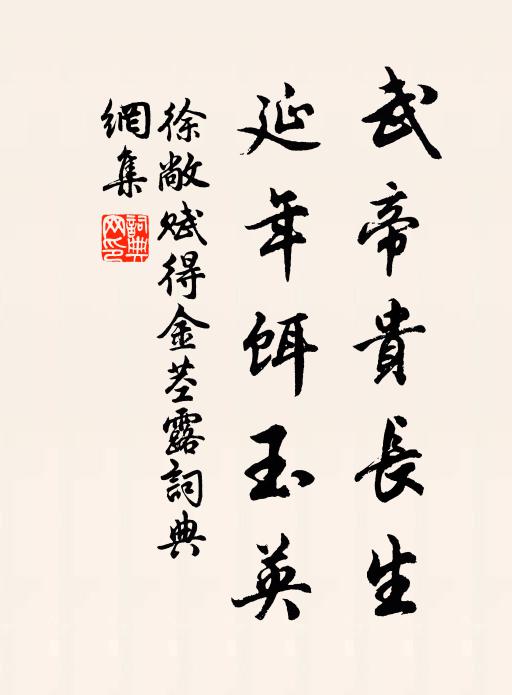 武帝貴長生
延年餌玉英
徐敞賦得金莖露詞典
網集
詞典網印